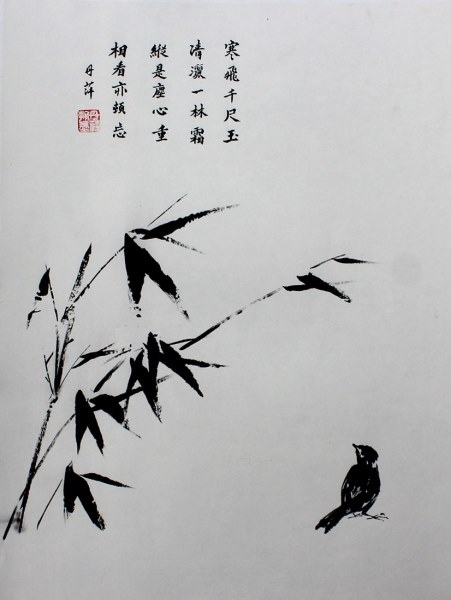 寒飛千尺玉
清灑一林霜
縱是塵心重
相看亦頓忘
丹萍